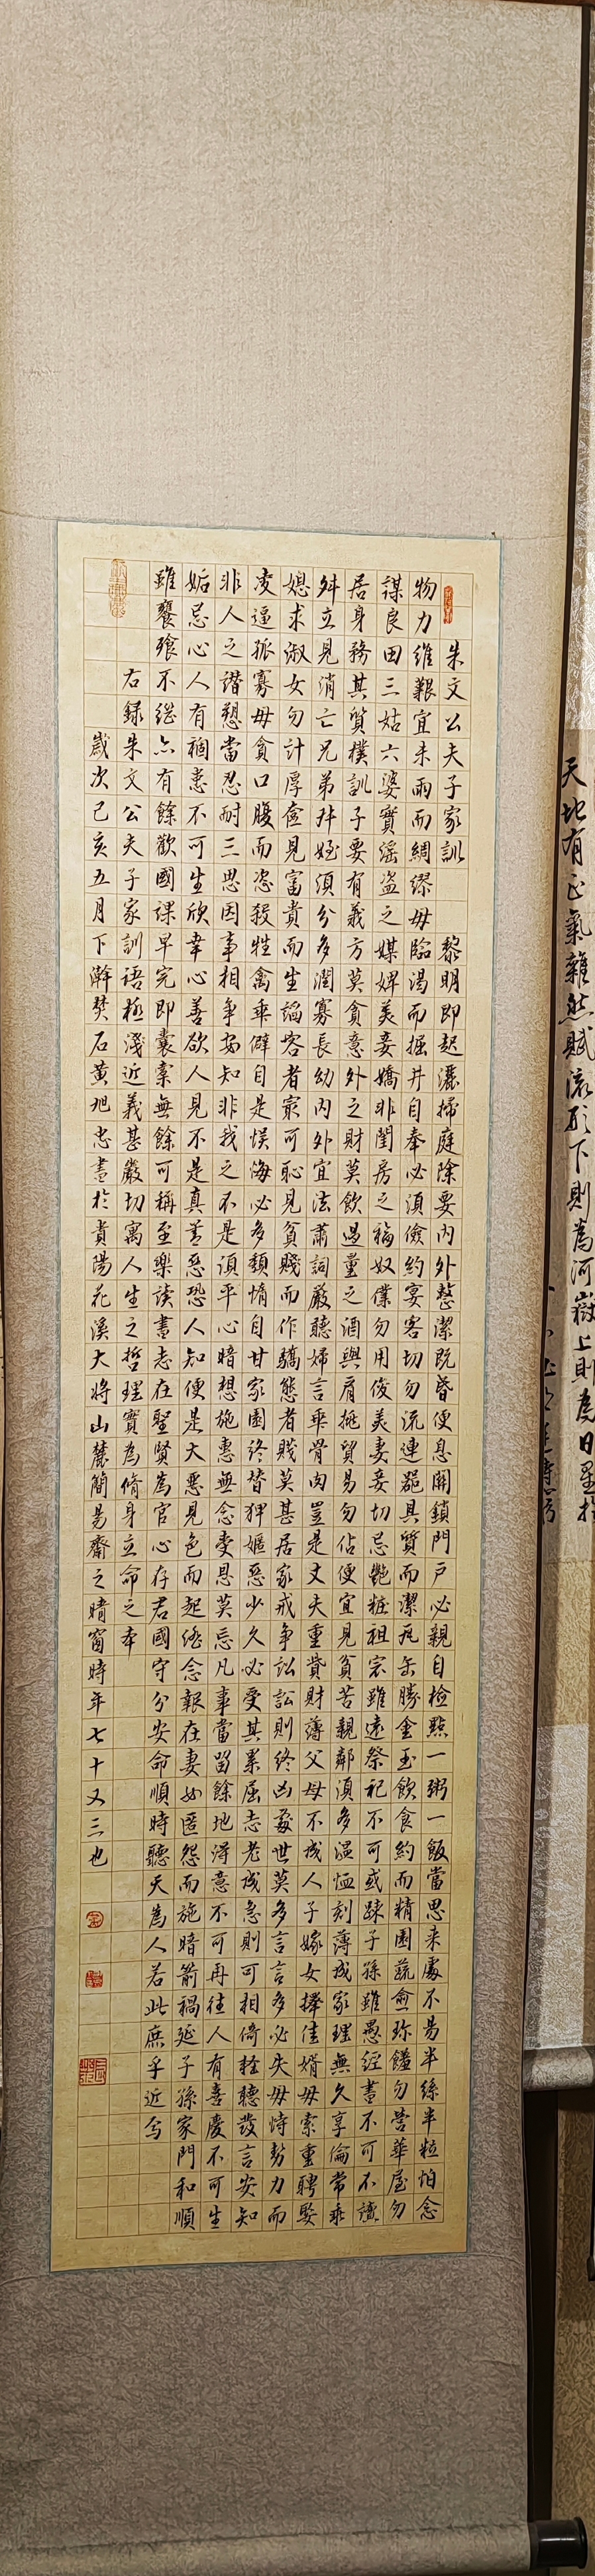 朱文公夫子家訓　黎明即起灑掃庭除要內外整潔既昏便息關鎖門戶必親自檢點一粥一飯當思來處不易半絲半粒怕念
物力維艱宜未雨而綢繆毋臨渴而掘井自奉必須儉約宴客切勿流連器具質而潔瓦缶勝金玉飲食約而精園蔬愈珍饈勿營華屋勿
謀良田三姑六婆實淫盜之媒婢美妾嬌非閨房之福奴僕勿用俊美妻妾切忌艷粧祖宗雖遠祭祀不可或踈子孫雖愚經書不可不讀
居身務其質樸訓子要有義方莫貪意外之財莫飲過量之酒與肩挑貿易勿佔便宜見貧苦親鄰須多溫恤刻薄成家理無久享倫常乖
舛立見消亡兄弟叔姪須分多潤寡長幼內外宜法肅詞嚴聽婦言乖骨肉豈是丈夫重貲財薄父母不成人子嫁女擇佳婿毋索重聘娶
媳求淑女勿計厚奩見富貴而生諂容者最可恥見貧賤而作驕態者賤莫甚居家戒爭訟訟則終凶處世莫多言言多必失毋恃勢力而
凌逼孤寡毋貪口腹而恣殺牲禽乖僻自是悞悔必多頹惰自甘家園終替狎嫗惡少久必受其累屈志老成急則可相倚輕聽發言安知
非人之譖愬當忍耐三思因事相爭安知非我之不是須平心暗想施惠無念受恩莫忘凡事當留餘地得意不可再往人有喜慶不可生
妬忌心人有禍患不可生欣幸心善欲人見不是真善惡恐人知便是大惡見色而起淫念報在妻女匿怨而施暗箭禍延子孫家門和順
雖饔飱不繼亦有餘歡國課早完即囊橐無餘可稱至樂讀書志在聖賢為官心存君國守分安命順時聽天為人若此庶乎近焉
右錄朱文公夫子家訓語極淺近義甚嚴切寓人生之哲理實為脩身立命之本
歲次己亥五月下澣焚石黃旭忠書於貴陽花溪大將山麓簡易齋之晴窗時年七十又三也
天地有正氣雜然賦流形下則為河嶽上則為日星於